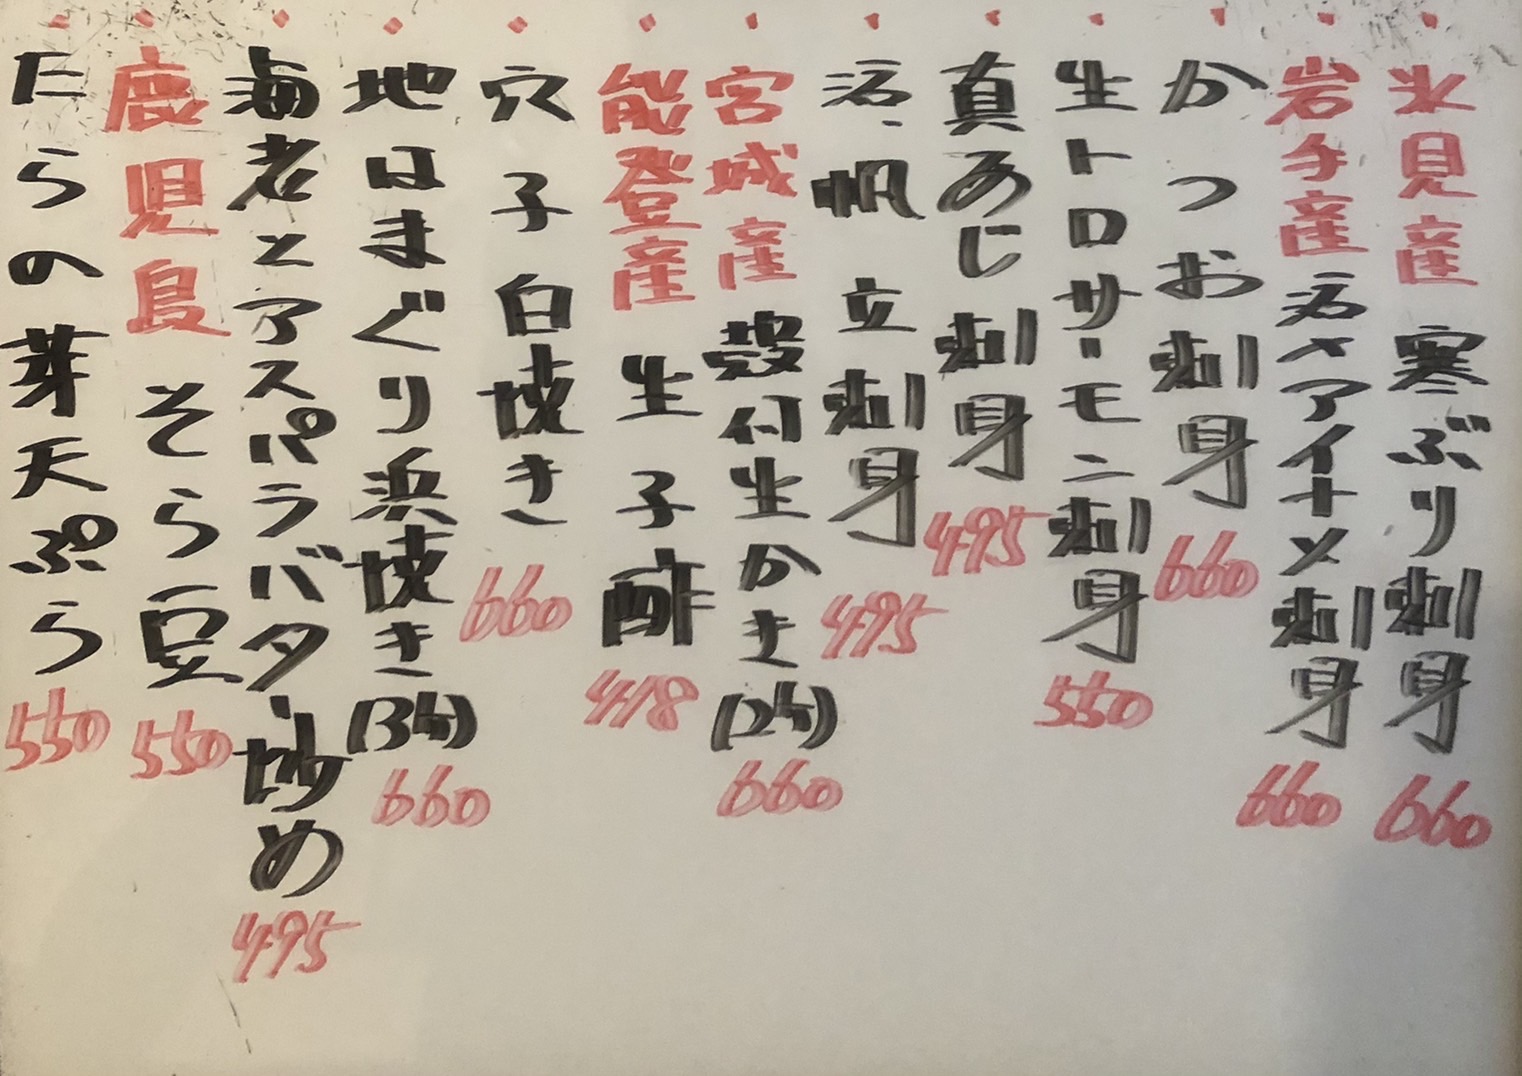 氷見産 寒ぶり刺身 660
岩手産 活〆アイナメ刺身 660
かつお刺身 660
生トロサーモン刺身 550
真あじ刺身 495
活帆立刺身 495
宮城産 殻付生かき(2ケ) 660
能登産 生子酢 418
穴子白焼き 660
地はまぐり浜焼き(3ケ) 660
海老とアスパラバター炒め 495
鹿児島 そら豆 550
たらの芽天ぷら 550